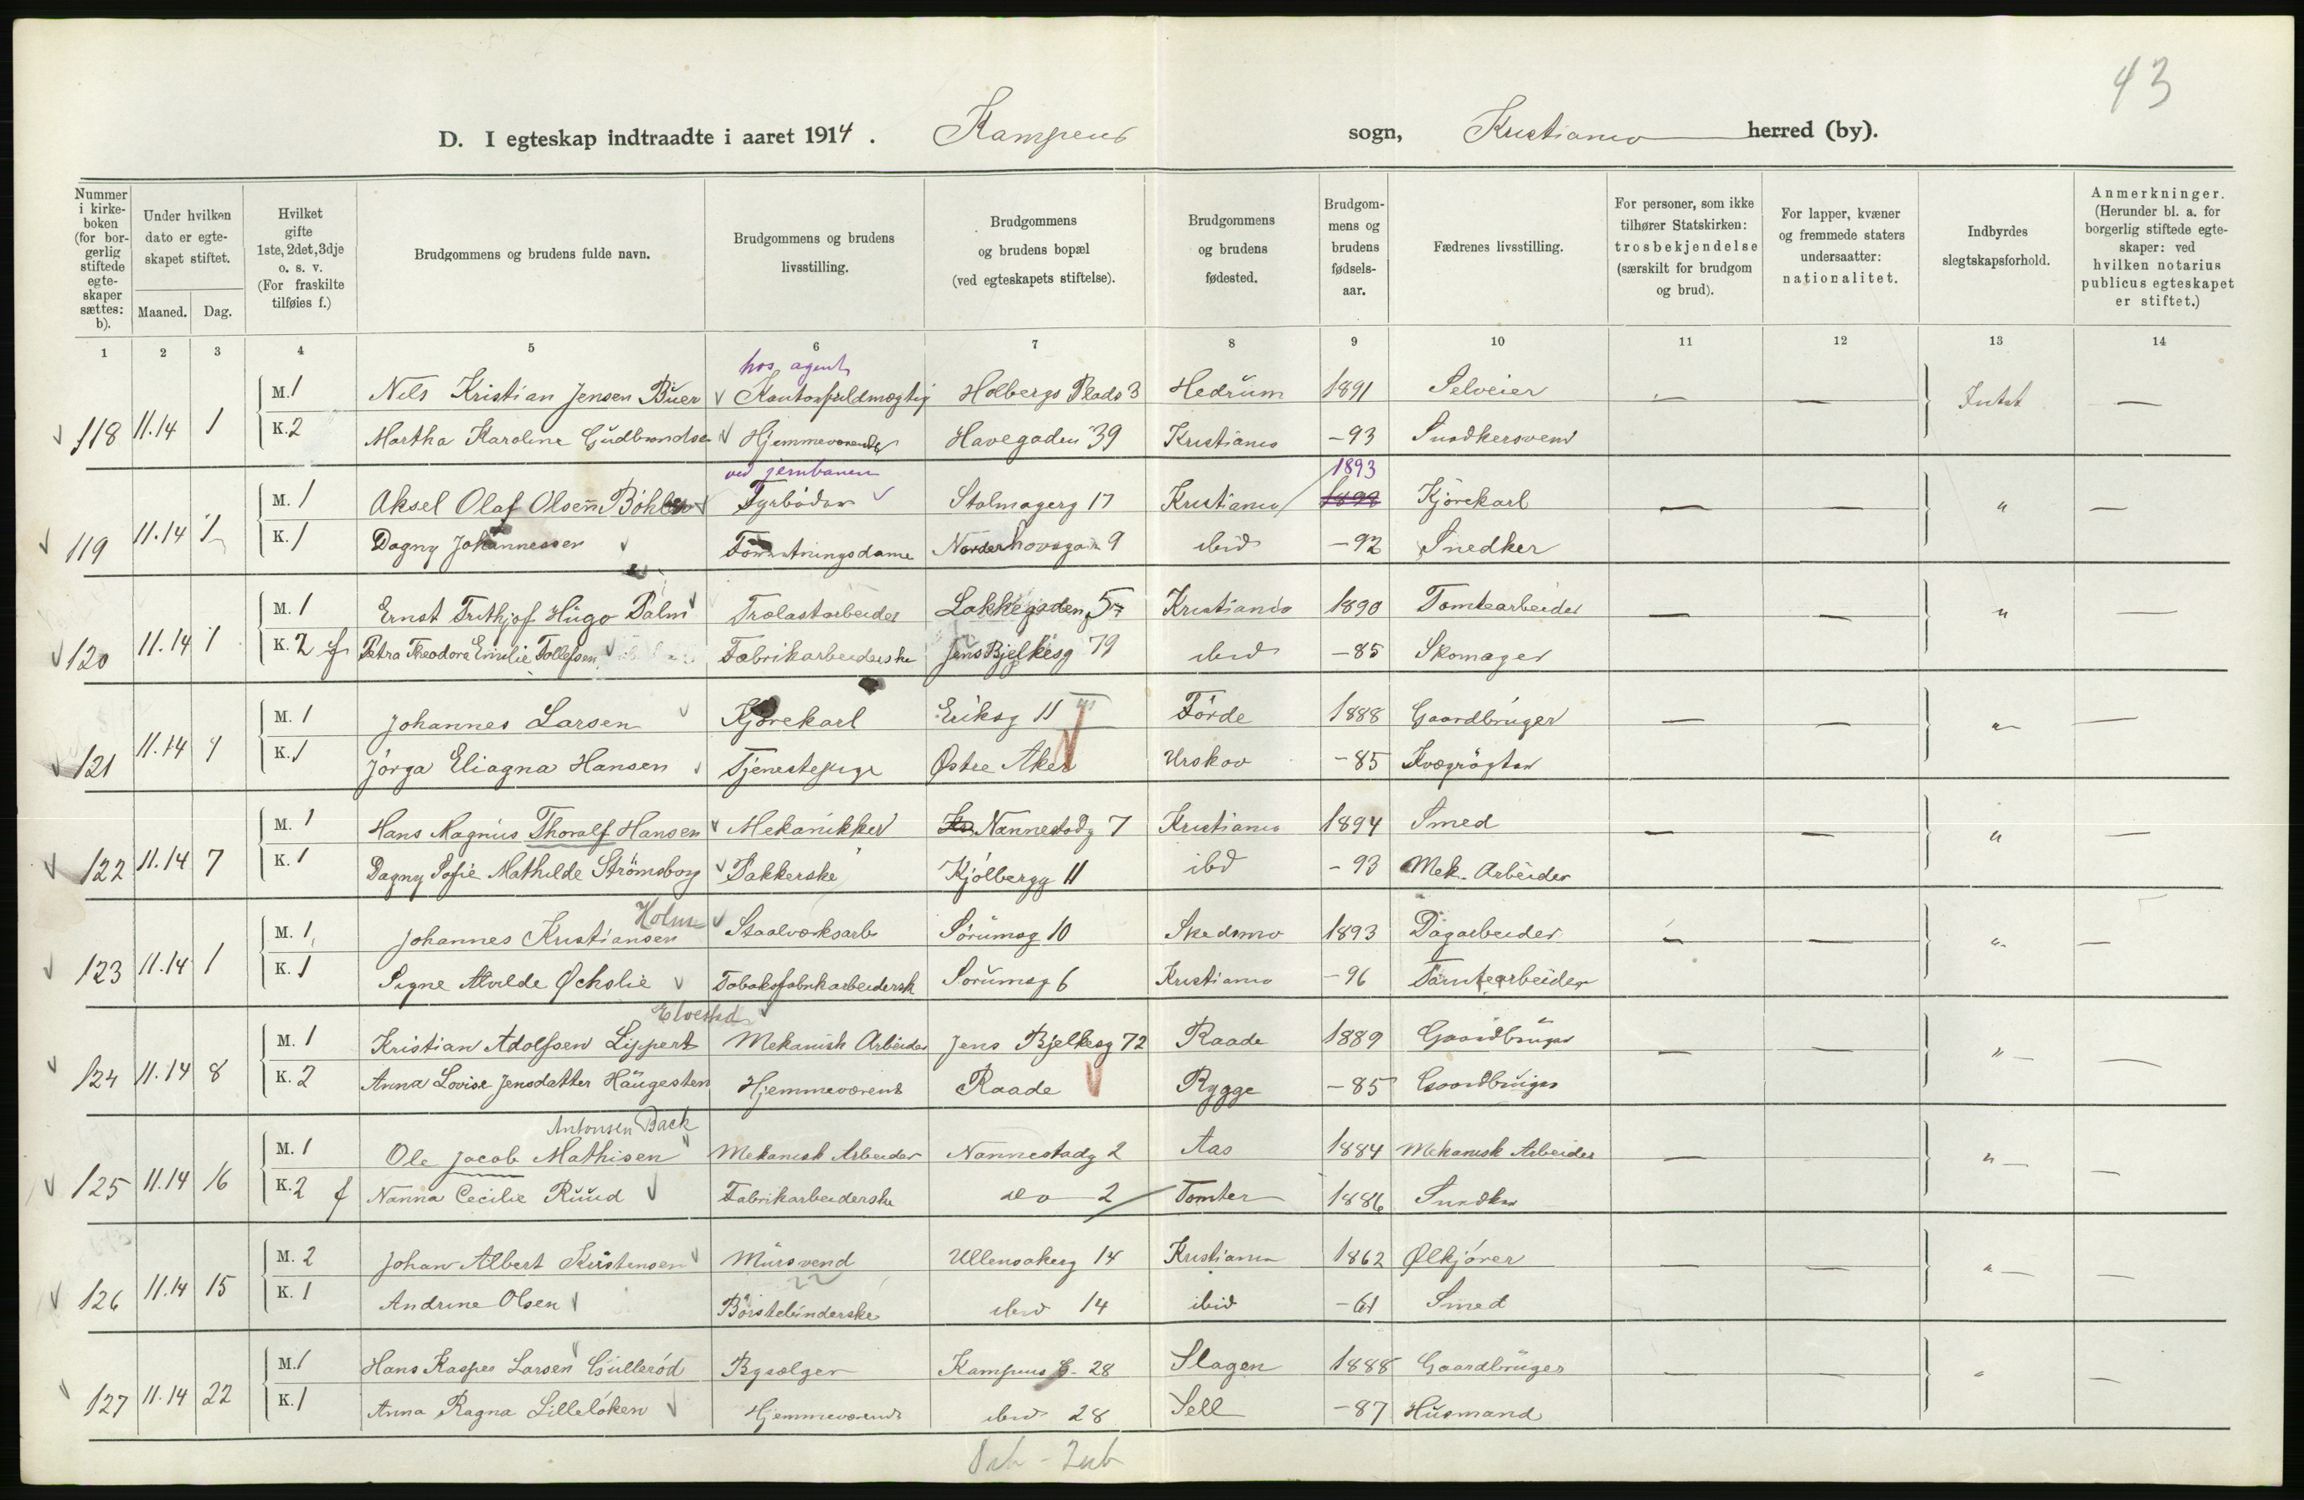 43
D. I egteskap indtraadte i aaret 1914. Kampens sogn, Kristiania herred (by).
Nummer i kirke-boken (for bor-gerlig stiftede egte-skaper sættes: b).
Under hvilken dato er egte-skapet stiftet.
Maaned. Dag.
Hvilket gifte 1ste, 2det, 3dje o. s. v. (For fraskilte tilføies f.)
Brudgommens og brudens fulde navn.
Brudgommens og brudens livsstilling.
Brudgommens og brudens bopæl (ved egteskapets stiftelse).
Brudgommens og brudens fødested.
Brudgom-mens og brudens fødsels-aar.
Fædrenes livsstilling.
For personer, som ikke tilhører Statskirken: trosbekjendelse (særskilt for brudgom og brud).
For lapper, kvæner og fremmede staters undersaatter: nationalitet.
Indbyrdes slegtskapsforhold.
Anmerkninger. (Herunder bl. a. for borgerlig stiftede egte-skaper: ved hvilken notarius publicus egteskapet er stiftet.)
1 2 3 4 5 6 7 8 9 10 11 12 13 14
hos agent
M. 1 Nils Kristian Jensen Buer Kontorfuldmægtig Holbergs Plads 3 Hedrum 1891 Selveier — — Intet —
118 11.14 1 K. 2 Martha Karoline Gudbrandsen Hjemmeværende Havegaden 39 Kristiania -93 Snedkersvend
ved jernbanen 1893
M. 1 Aksel Olaf Olsen Böhler Fyrböder Stalmagerg 17 Kristiania 1892 Kjørekarl — — " —
119 11.14 1 K. 1 Dagny Johannessen Forretningsdame Norderhovsgaden 9 ibid -92 Snedker
M. 1 Ernst Frithjof Hugo Palm Trælastarbeider Lakkegaden 57 Kristiania 1890 Tomtearbeider — — " —
120 11.14 1 K. 2 f Petra Theodora Emilie Tollefsen Fabrikarbeiderske Jens Bjelkesg 79 ibid -85 Skomager
M. 1 Johannes Larsen Kjørekarl Eriksg 11 III Förde 1888 Gaardbruger — — " —
121 11.14 7 K. 1 Jörga Eliagna Hansen Tjenestepige Østre Aker Urskov -85 Kvægrögter
M. 1 Hans Magnus Thoralf Hansen Mekanikker Nannestadg 7 Kristiania 1894 Smed — — " —
122 11.14 7 K. 1 Dagny Sofie Mathilde Strömsborg Pakkerske Kjölbergg 11 ibd -93 Mek. Arbeider
Holm
M. 1 Johannes Kristiansen Staalværksarb Sörumsg 10 Skedsmo 1893 Dagarbeider — — " —
123 11.14 1 K. 1 Signe Alvilde Ocholie Tobaksfabrikarbeidersk Sörumsg 6 Kristiania -96 Tomtearbeider
Elvestad
M. 1 Kristian Adolfsen Lippert Mekanisk Arbeider Jens Bjelkesg 72 Raade 1889 Gaardbruger — — " —
124 11.14 8 K. 2 Anna Lovise Jensdatter Haugesten Hjemmeværende Raade Rygge -85 Gaardbruger
Antonsen Back
M. 1 Ole Jacob Mathisen Mekanisk Arbeider Nannestadg 2 Aas 1884 Mekanisk Arbeider — — " —
125 11.14 16 K. 2 f Nanna Cecilie Ruud Fabrikarbeiderske do 2 Tomter 1886 Snedker
M. 2 Johan Albert Kristensen Mursvend Ullensakerg 14 Kristiania 1862 Ølkjører — — " —
22
126 11.14 15 K. 1 Andrine Olsen Börstebinderske ibid 14 ibid -61 Smed
M. 1 Hans Kasper Larsen Gulleröd Bysælger Kampens G. 28 Slagen 1888 Gaardbruger — — " —
127 11.14 22 K. 1 Anna Ragna Lillelöken Hjemmeværende ibid 28 Sell -87 Husmand